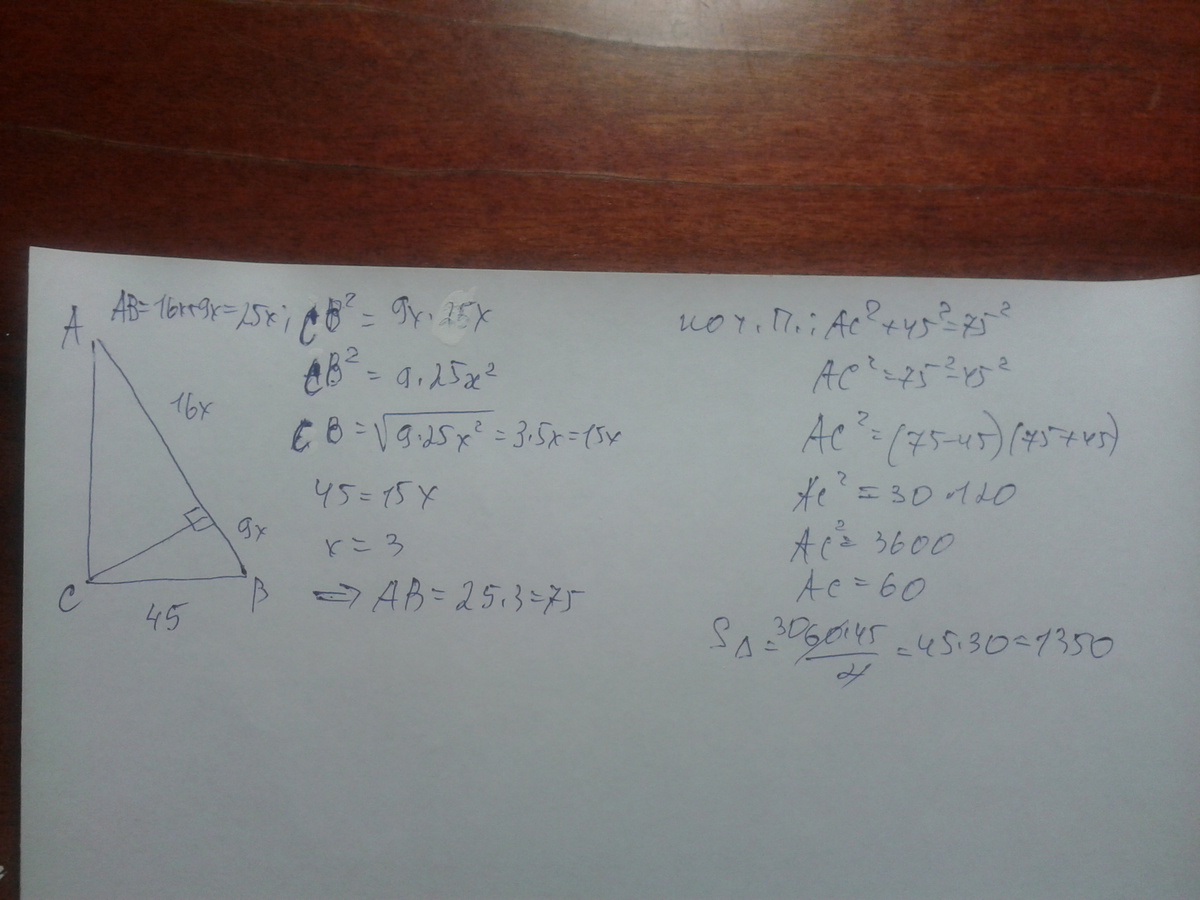 A
AB=16x+9x=25x; CB²=9x.25x
CB²=9.25x²
16x
CB=√9.25x²=3.5x=15x
45=15x
9x
x=3
C
B
⇒ AB=25.3=75
45
по т.П.: AC²+45²=75²
AC²=75²-45²
AC²=(75-45)(75+45)
AC²=30.120
AC²=3600
AC=60
S△=30 60.45/2=45.30=1350